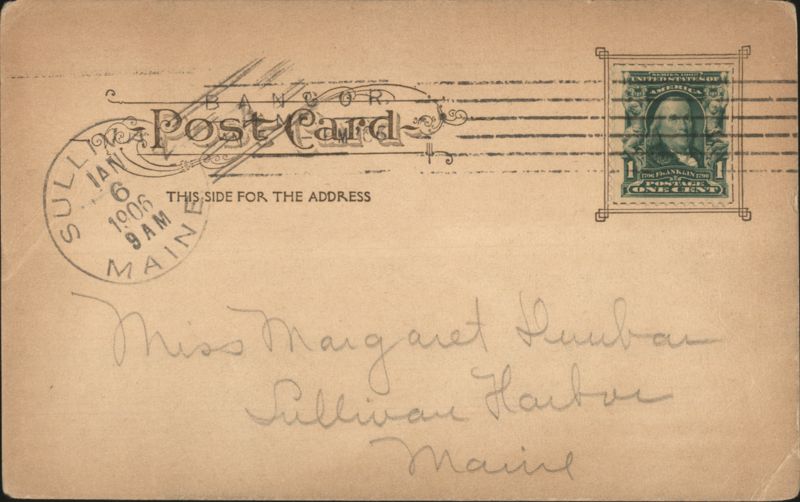 BANGOR
Post Card
THIS SIDE FOR THE ADDRESS
SULLIVAN
JAN
6
1906
9 AM
MAINE
SERIES 1902
UNITED STATES OF
AMERICA
1706 FRANKLIN 1790
1 POSTAGE 1
ONE CENT
Miss Margaret Dunbar
Sullivan Harbor
Maine